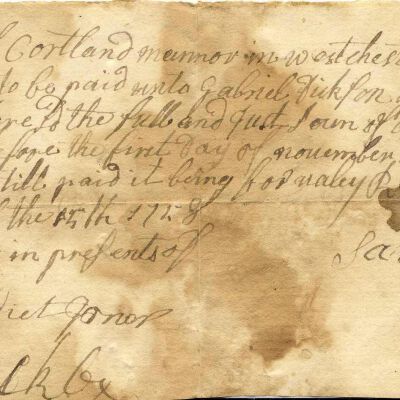 Cortland mannor in westches
to be paid unto Gabriel Dickson
the full and Just Soum of
fore the first Day of november
till paid it being for valey R
the 15th 1758
in presents of
Sa
Jones